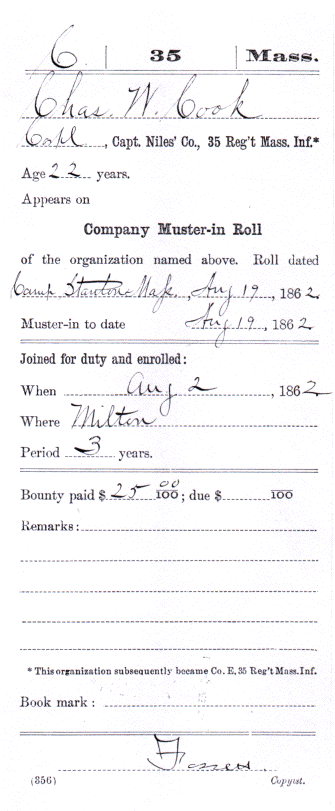 C | 35 | Mass.
Chas. W. Cook
Corpl, Capt. Niles' Co., 35 Reg't Mass. Inf.*
Age 22 years.
Appears on
Company Muster-in Roll
of the organization named above. Roll dated
Camp Stanton Mass., Aug 19, 1862
Muster-in to date Aug 19, 1862
Joined for duty and enrolled:
When Aug 2, 1862
Where Milton
Period 3 years.
Bounty paid $25 00/100; due $ 100
Remarks:
* This organization subsequently became Co. E, 35 Reg't Mass. Inf.
Book mark:
(356) Copyist.